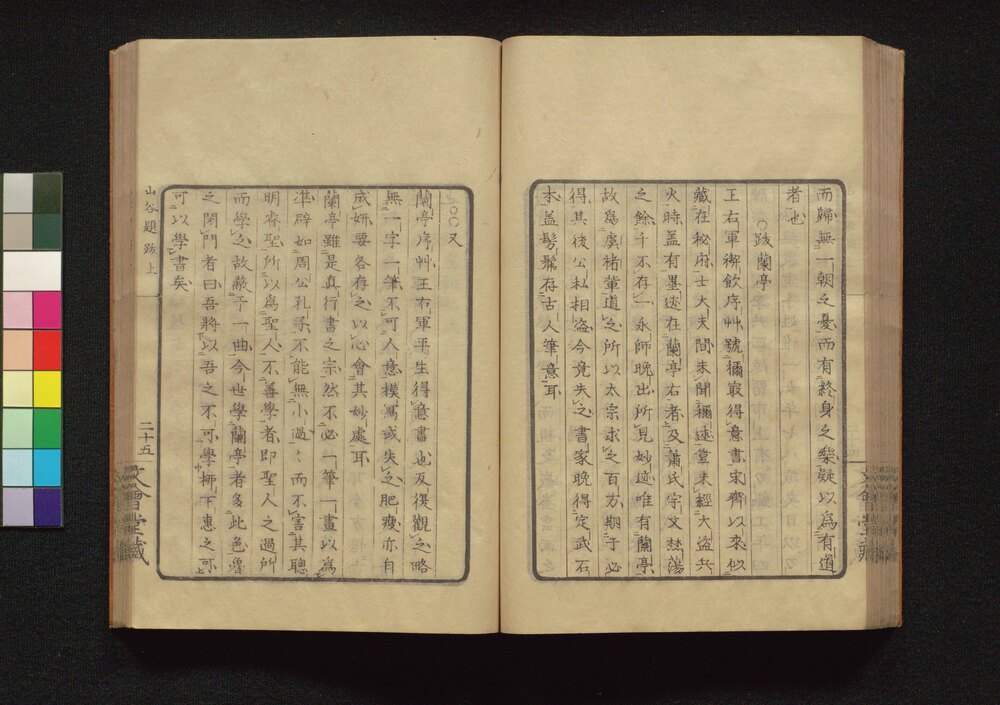 而歸無一朝之憂而有終身之樂疑以為有道
者也
○跋蘭亭
王右軍禊飲序艸號稱冣得意書宋齊以來似
藏在秘府士大夫間未聞稱述豈未經大盜兵
火時盖有墨迹在蘭亭右者及蕭氏宇文焚蕩
之餘千不存一永師晩出所見妙迹唯有蘭亭
故為虞褚輩道之所以太宗求之百方期于必
得其後公私相盜今竟失之書家晩得定武石
本盖髣髴存古人筆意耳
○○又
蘭亭序艸王右軍平生得意書也反復觀之略
無一字一筆不可人意摸寫或失之肥瘦亦自
成妍要各存之以心會其妙處耳
蘭亭雖是真行書之宗然不必一筆一畫以為
準辟如周公孔子不能無小過〻而不害其聰
明睿聖所以為聖人不善學者即聖人之過所
而學之故蔽于一曲今世學蘭亭者多此色魯
之閉門者曰吾將以吾之不可學柳下惠之可
可以學書矣
山谷題跋上
二十五
文會堂藏
文會堂藏